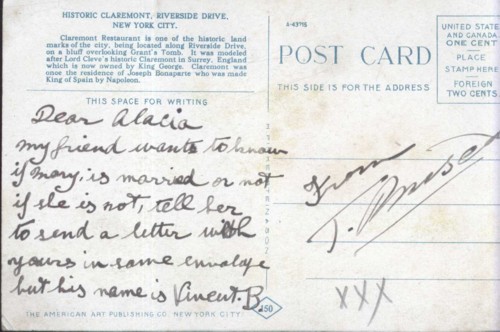 HISTORIC CLAREMONT, RIVERSIDE DRIVE,
NEW YORK CITY.
Claremont Restaurant is one of the historic land
marks of the city, being located along Riverside Drive,
on a bluff overlooking Grant's Tomb. It was modeled
after Lord Clive's historic Claremont in Surrey, England
which is now owned by King George. Claremont was
once the residence of Joseph Bonaparte who was made
King of Spain by Napoleon.
THIS SPACE FOR WRITING
Dear Alacia
my friend wants to know
if mary, is married or not
if she is not, tell her
to send a letter with
yours in same envalope
but his name is Vincent. B
THE AMERICAN ART PUBLISHING CO. NEW YORK CITY
150
POST CARD
THIS SIDE IS FOR THE ADDRESS
UNITED STATES
AND CANADA
ONE CENT
PLACE
STAMP HERE
FOREIGN
TWO CENTS
From
XXX